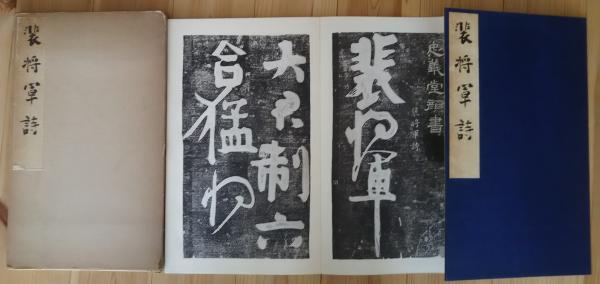 裴将軍詩
忠義堂顔書
裴将軍詩
裴将軍
大君制六
合猛将
裴将軍詩